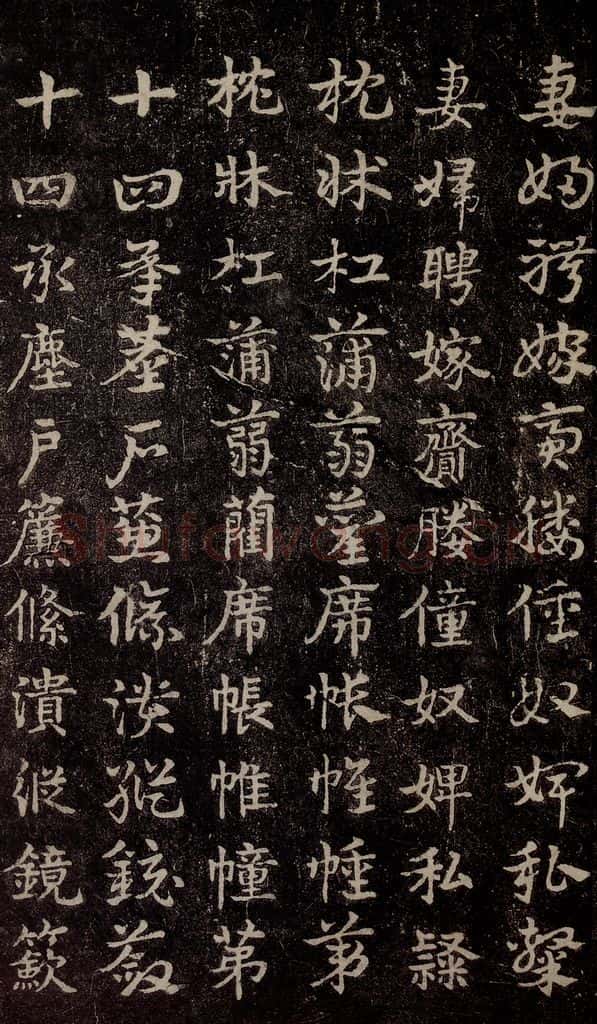 妻婦聘嫁齎媵僮奴婢私隸
妻婦聘嫁齎媵僮奴婢私隸
枕牀杠蒲蒻藺席帳帷幢第
枕牀杠蒲蒻藺席帳帷幢第
十四承塵戶簾絛潰縱鏡籢
十四承塵戶簾絛潰縱鏡籢
shufawang.cn